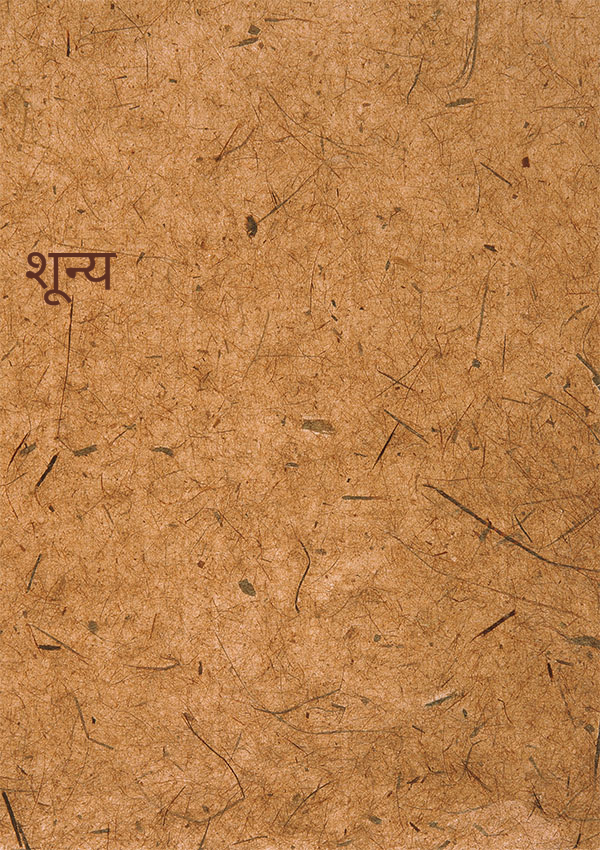 शून्य